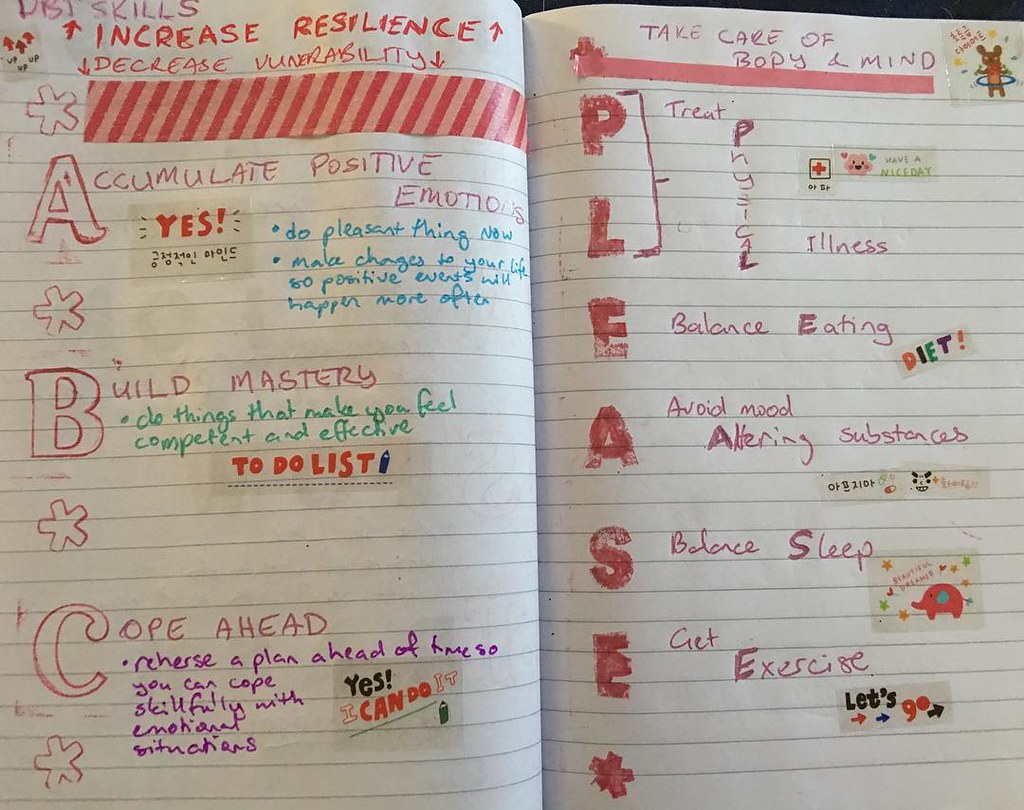 DBT SKILLS
↑ INCREASE RESILIENCE ↑
↓DECREASE VUNERABILITY↓
UP UP
UP
ACCUMULATE POSITIVE
EMOTIONS
YES!
긍정적인 마인드
• do pleasant thing now
• make changes to your life
so positive events will
happen more often
BUILD MASTERY
• do things that make you feel
competent and effective
TO DO LIST
COPE AHEAD
• reherse a plan ahead of time so
you can cope
skillfully with
emotional
situations
Yes!
I CAN DO IT
TAKE CARE OF
BODY & MIND
다이어트
PL
Treat
PHYSICAL
Illness
아파
HAVE A
NICEDAY
E
Balance Eating
DIET!
A
Avoid mood
Altering substances
아프지마
S
Balance Sleep
BEAUTIFUL
DREAMER
E
Get
Exercise
Let's go